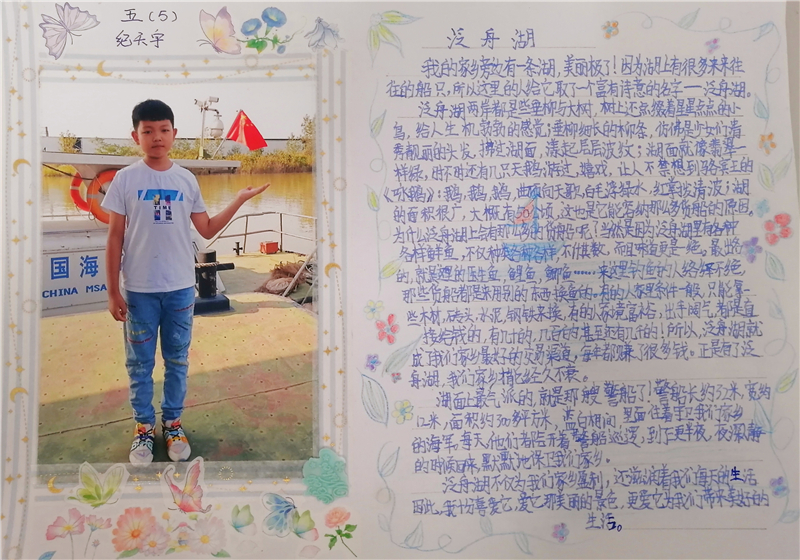 五(5)
纪天宇
国海
CHINA MSA
TIME
泛舟湖
我的家乡旁边有一条湖,美丽极了!因为湖上有很多来来往
往的船只,所以这里的人给它取了一个富有诗意的名字——泛舟湖。
泛舟湖两岸都是些垂柳与大树,树上还点缀着星星点点的小
鸟,给人生机勃勃的感觉;垂柳细长的柳条,仿佛是少女们清
秀靓丽的头发,拂过湖面,漾起层层波纹;湖面就像
绿,时不时还有几只天鹅游过,嬉戏,让人不禁想到骆宾王的
《咏鹅》:鹅,鹅,鹅,曲项向天歌,白毛浮绿水,红掌拨清波;湖
的面积很广,大概有50公顷,这也是它能容纳那么多货船的原因。
为什么泛舟湖上会有那么多的货船呢?当然是因为泛舟湖里有各种
各样鲜鱼,不仅种类各种各样,不计其数,而且味道更是一绝。最出名
的,就是这的鱼,鲤鱼,鲫鱼……来这里的人络绎不绝,
那些货船都是来用别的东西换鱼的。有的人家里条件一般,只能拿一
些木材,砖头,水泥,钢铁来换,有的人家境富裕,出手阔气,都是直
接给钱的,有几十的,几百的甚至还有几千的!所以,泛舟湖就
成了我们家乡最好的交易渠道,每年都赚了很多钱。正是有了泛
舟湖,我们家乡才经久不衰。
湖面上最气派的,就是那艘警船了!警船长约32米,宽约
12米,面积约300多平方米,蓝白相间,里面住着守卫我们家乡
的海军,每天,他们都会开着警船巡逻,到了下半夜,夜深人静
的时候回来,默默地保卫我们家乡。
泛舟湖不仅为我们家乡盈利,还滋润着我们每天的生活
因此,我十分喜爱它,爱它那美丽的景色,更爱它为我们带来美好的
生活。